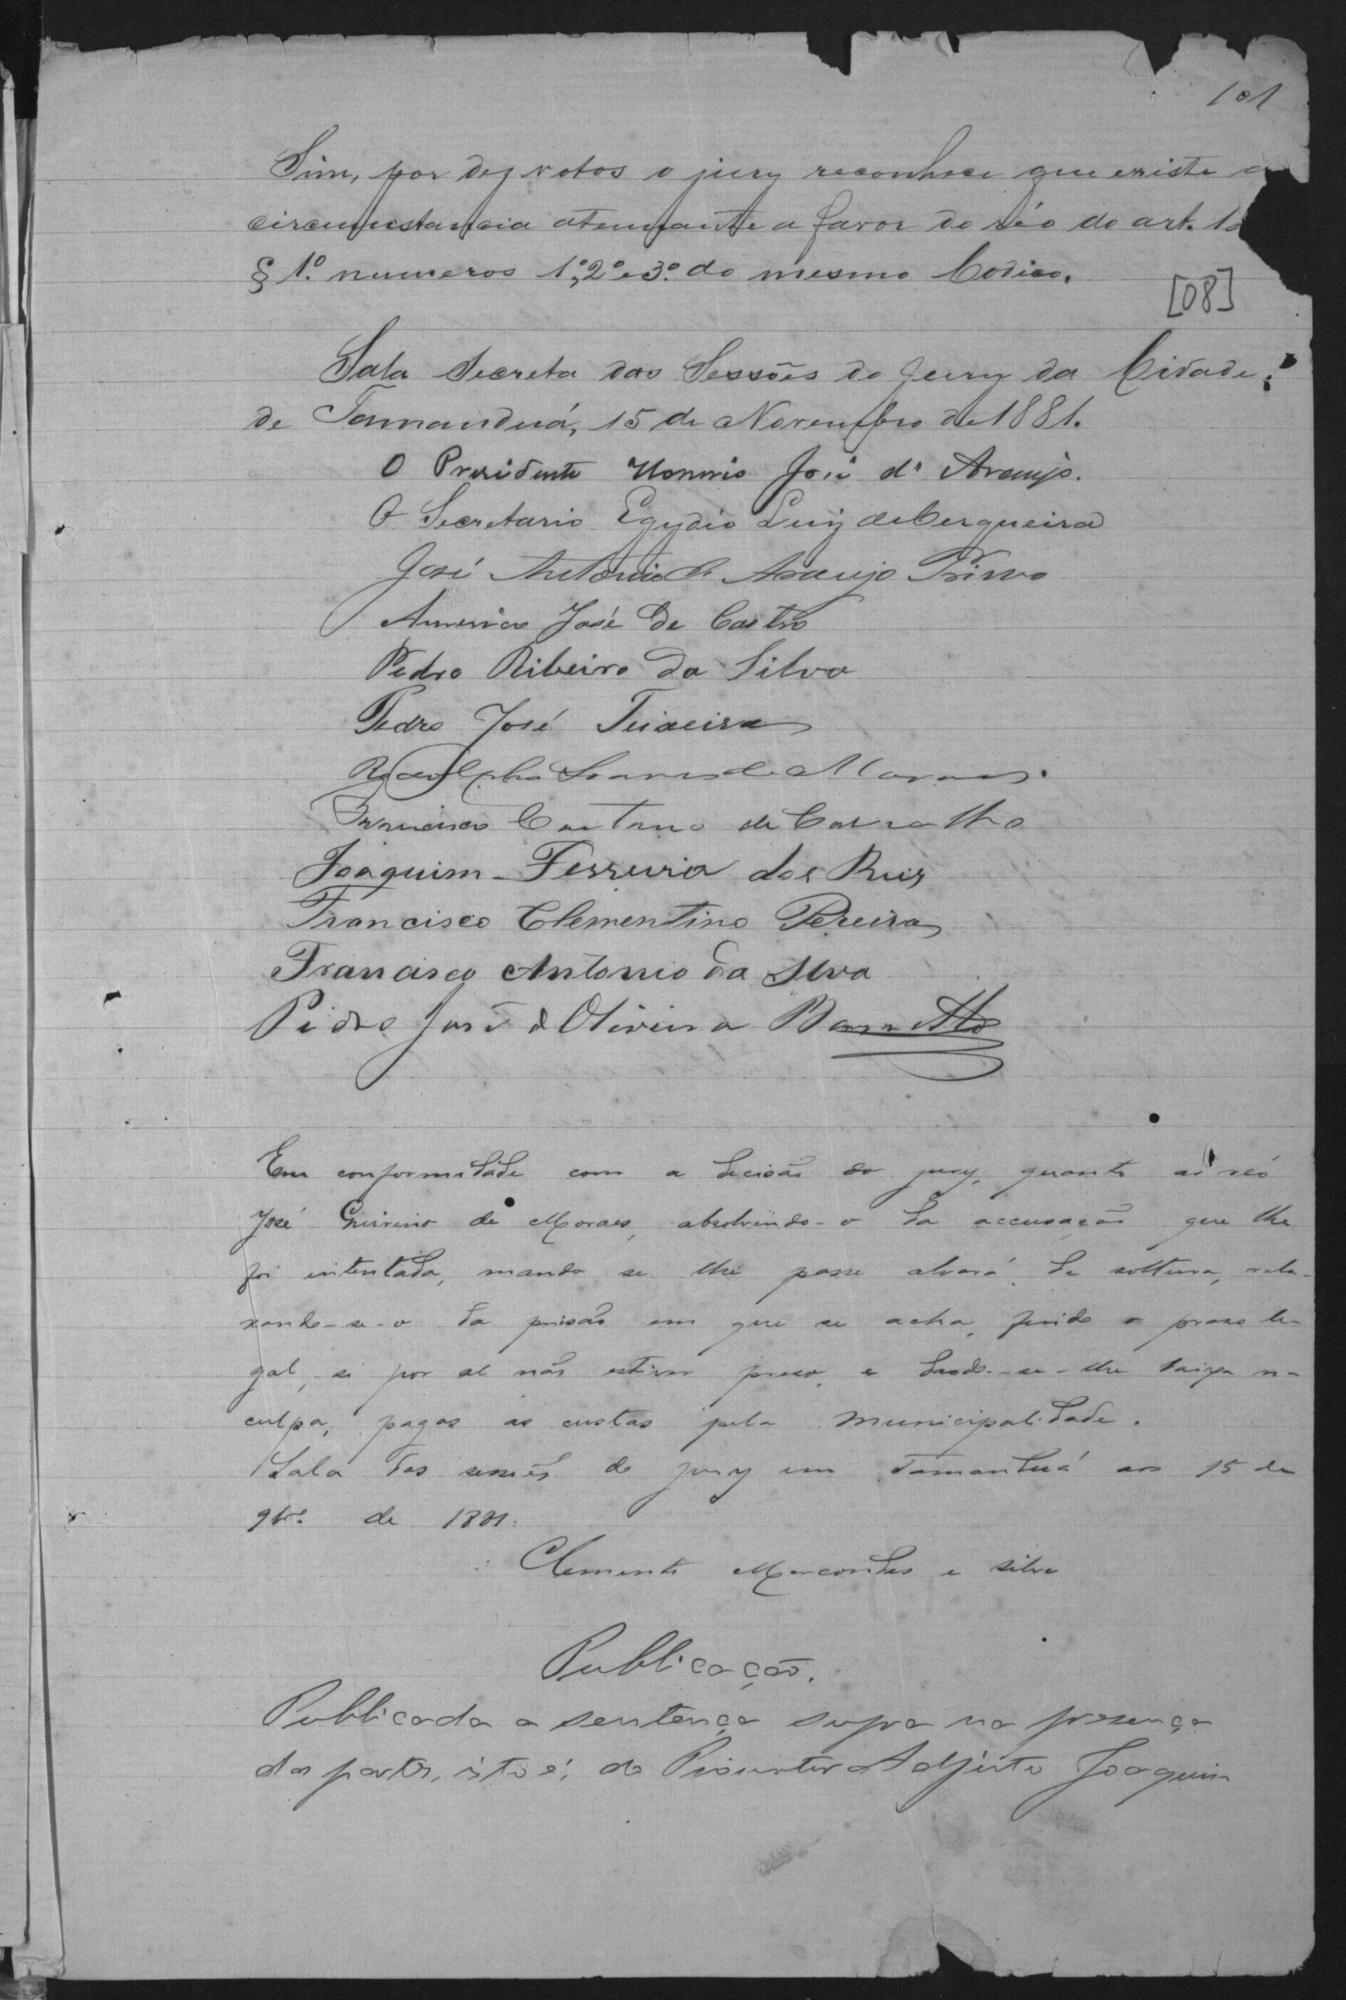 101
Sim, por dez votos o jury reconhece que existe a
circumstancia atenuante a favor do réo do art. 18
§ 1.º numeros 1º, 2º e 3º. do mesmo Codigo.
[08]
Sala Secreta das Sessões do Jury da Cidade
de Tamanduá, 15 de Novembro de 1881.
O Presidente Honorio José d' Araujo.
O Secretario Egydio Luiz de Cerqueira
José Antonio de Araujo
Americo José de Castro
Pedro Ribeiro da Silva
Pedro José Teixeira
Soares de Moraes.
Francisco Caetano de Carvalho
Joaquim Ferreira dos Reis
Francisco Clementino Pereira
Francisco Antonio da Silva
Pedro José d Oliveira Barretto
Em conformidade com a decisão do jury, quanto ao réo
José Quirino de Moraes, absolvendo-o da accusação que lhe
foi intentada, mando se lhe passe alvará de soltura, rela-
xando-se-o da prisão em que se acha, findo o praso le-
gal, si por al não estiver preso, e dando-se-lhe baixa na
culpa, pagas as custas pela Municipalidade.
Sala das sessões do jury em Tamanduá aos 15 de
9br.º de 1881.
Clemente Marcondes e Silva
Publicação.
Publicada a sentença supra na presença
das partes, isto é, do Promotor Adjunto Joaquim